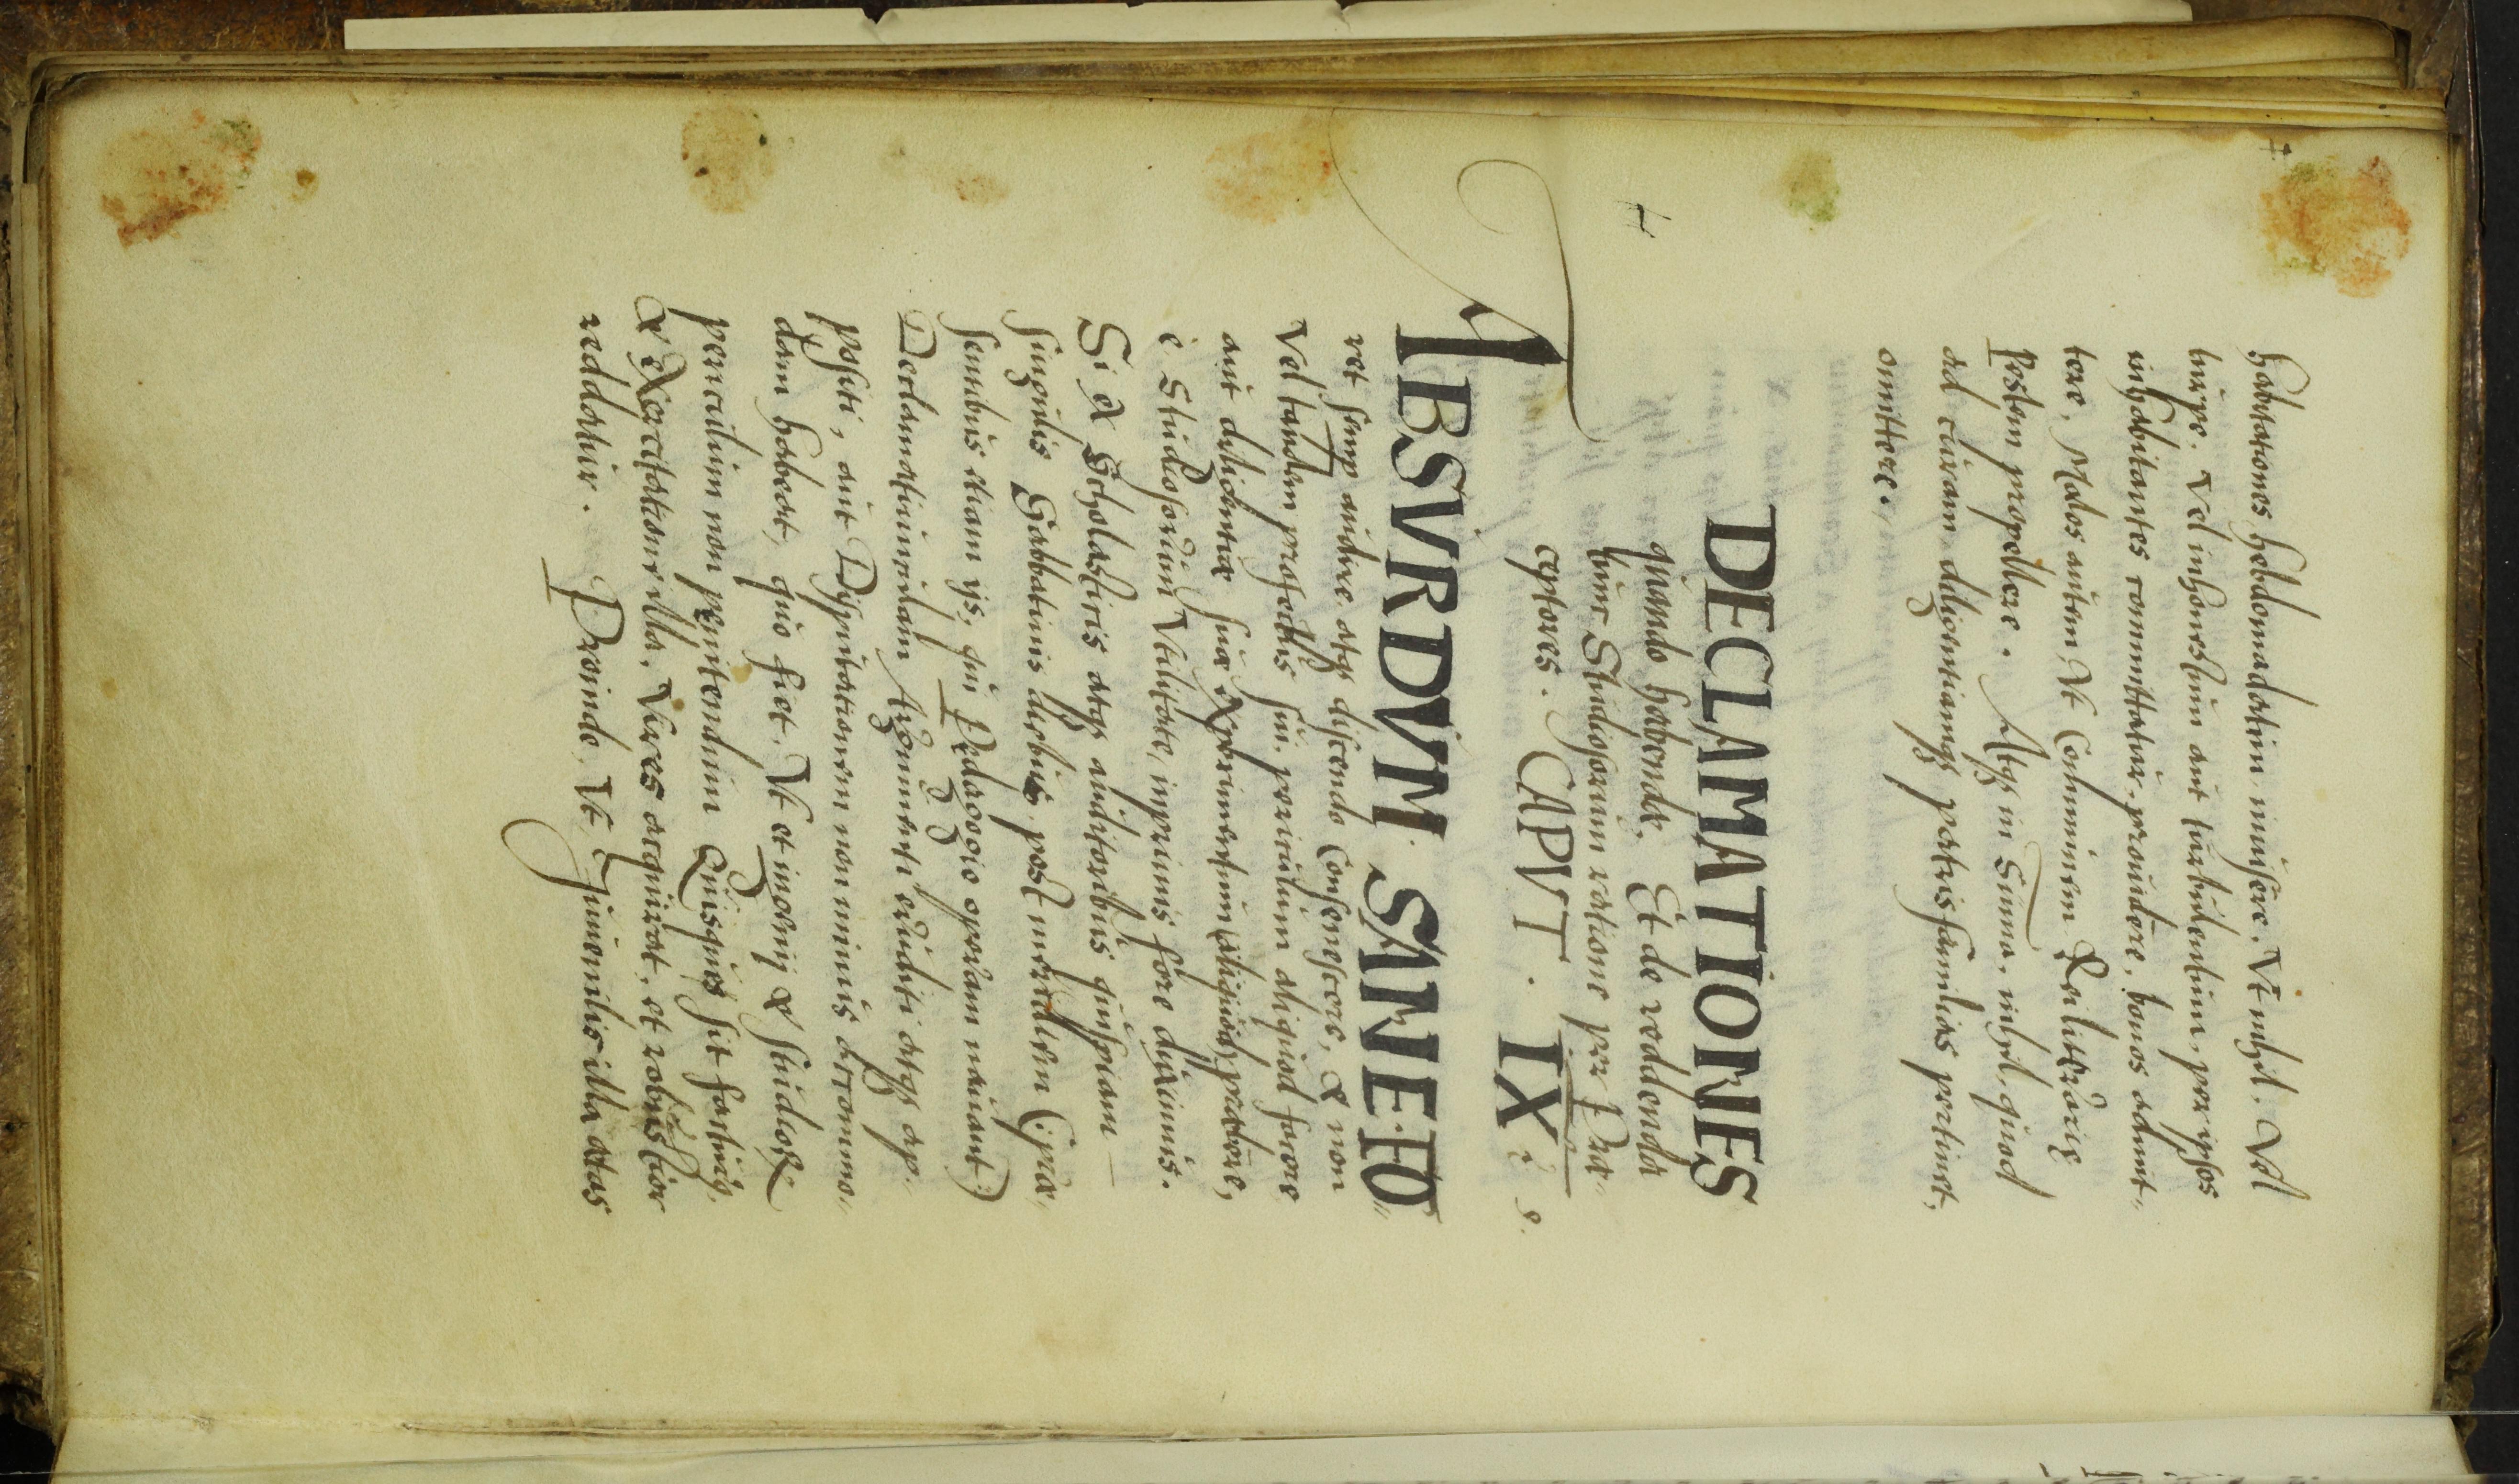 habitationes hebdomadatim inuisere. Vt nihil. Vel
turpe. Vel inhonestum aut turbulentum, per ipsos
inhabitantes committatur, prouidere, bonos admit-
tere. Malos autem Vt Communem Reipublicae
Pestem propellere. Atq in Summa, nihil, quod
ad curam diligentiamq patris familias pertinet,
omittere.
DECLAMATIONES
quando habendae. Et de reddenda
hinc Studiosorum ratione per Prae-
ceptores. CAPVT. IX.
ABSVRDVM SANE FO-
ret semp audire, atq discendo Consenescere, & non
Vel tandem profectus sui, periculum aliquod facere
aut diligentiae suae Experimentum aliquod praebere,
è Studiosorum Vtilitate, inprimis fore duximus.
Si ex Scholasticis atq auditoribus quispiam
singulis Sabbatinis diebus, post meridiem (: prae-
sentibus etiam ijs, qui Pedagogio operam nauant:)
Declamatiunculam Argumenti eruditi atq ap-
positi, aut Disputationem non minus accommo-
dam habeat, quo fiet. Vt et ingenij & studiorum
periculum non penitendum Quisquis sit faciat,
& Exercitatione illa, Vires acquirat, et robustior
reddatur. Proinde, Vt Juuenilis illa aetas